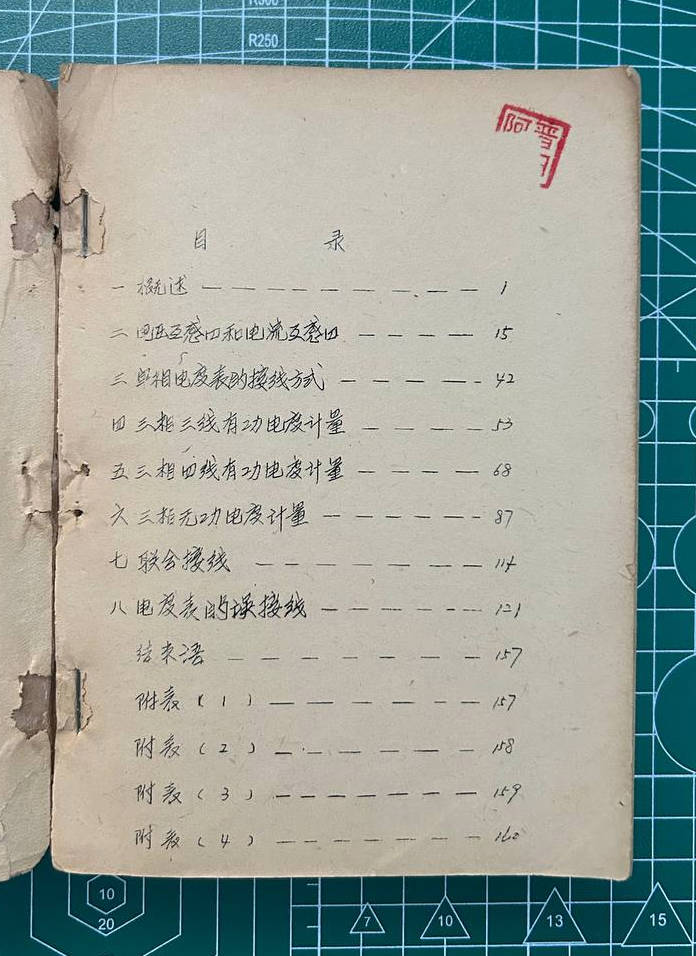 R300
R250
阿普
目 录
一 概述 — — — — — — — — — 1
二 电压互感口和电流互感口 — — — — 15
三 单相电度表的接线方式 — — — — — 42
四 三相三线有功电度计量 — — — — 53
五 三相四线有功电度计量 — — — — 68
六 三相无功电度计量 — — — — — 87
七 联合接线 — — — — — — — 114
八 电度表的误接线 — — — — — 121
结束语 — — — — — — — — 157
附表(1) — — — — — — — 157
附表(2) — — — — — — — 158
附表(3) — — — — — — — 159
附表(4) — — — — — — — 160
10
20
7
10
13
15